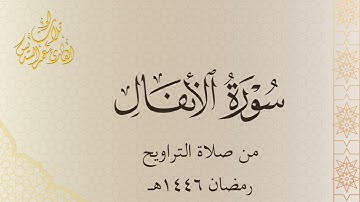 سُورَةُ ٱلْأَنفَالِ
من صلاة التراويح
رمضان ١٤٤٦هـ